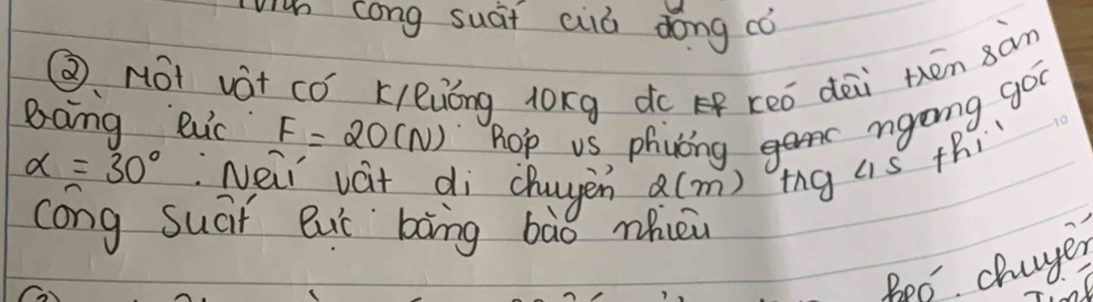 công suất của động cơ
② Một vật có k/lượng 10kg đc kéo đều trên sàn
bằng lực F = 20(N) hợp vs phương ngang góc
α = 30°. Nếu vật di chuyển 2(m) trg 4s thì
công suất lực bằng bao nhiêu
kéo. chuyển